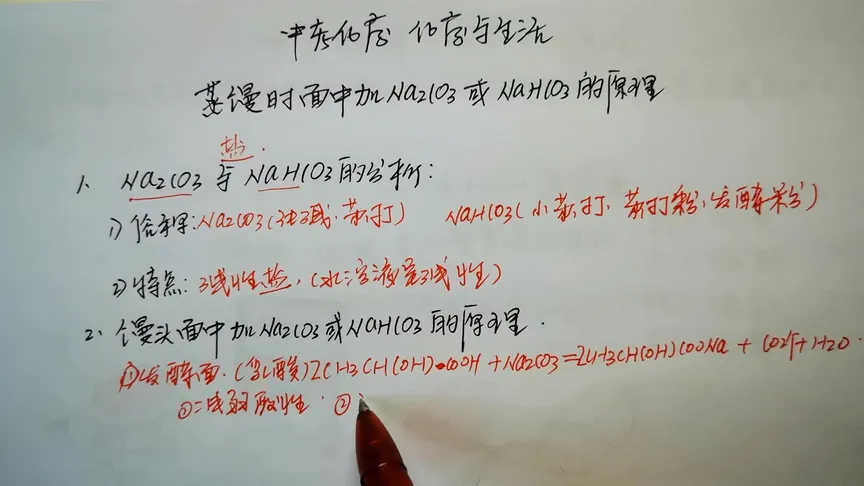 中考化学 化学与生活
蒸馒时面中加Na2CO3或NaHCO3的原理
盐.
1、Na2CO3与NaHCO3的分析:
1) 俗称:Na2CO3(纯碱、苏打) NaHCO3(小苏打、苏打粉、发酵粉)
2) 特点:碱性盐,(水溶液呈碱性)
2、馒头面中加Na2CO3或NaHCO3的原理.
①发酵面.(乳酸)2CH3CH(OH)COOH + Na2CO3=2CH3CH(OH)COONa + CO2↑+H2O.
①=成弱酸性. ②